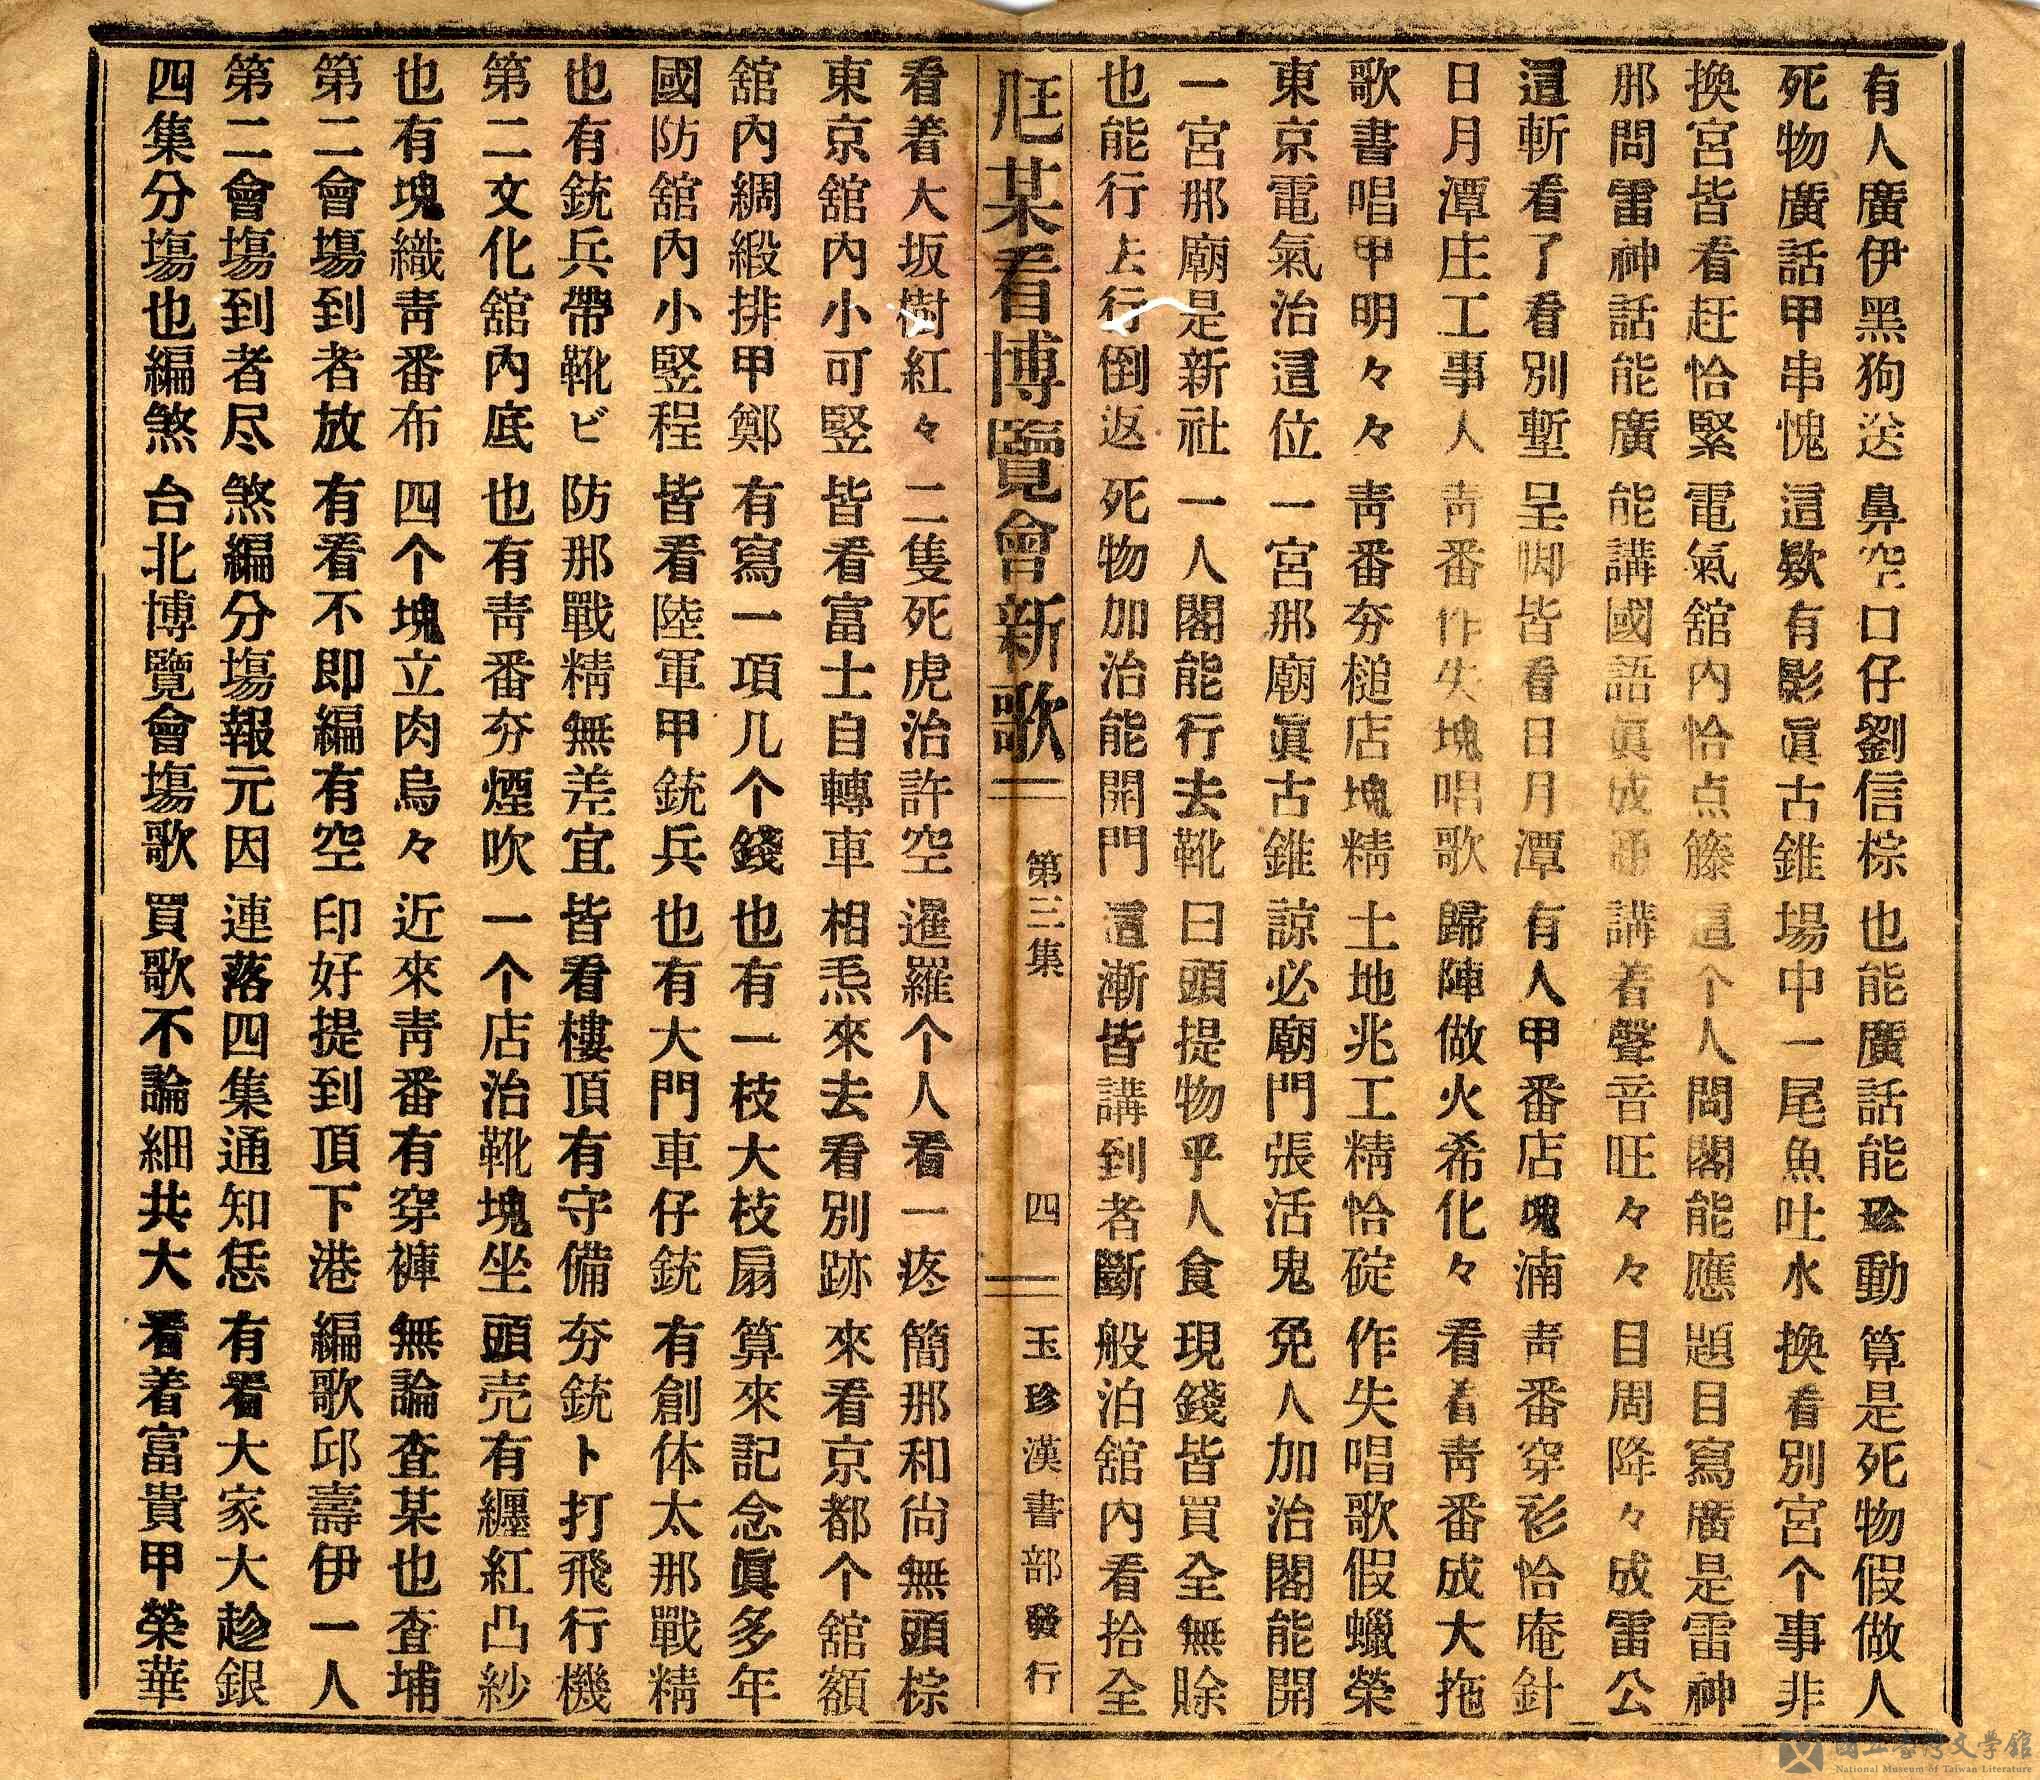 有人廣伊黑狗送 鼻空口仔劉信棕 也能廣話能珍動 算是死物假做人
死物廣話甲串愧 這欵有影眞古錐 場中一尾魚吐水 換看別宮个事非
換宮皆看赶恰緊 電氣舘內恰点籐 這个人問閣能應 題目寫廣是雷神
那問雷神話能廣 能講國語眞成通 講着聲音旺々々 目周降々成雷公
這斬看了看別塹 呈脚皆看日月潭 有人甲番店塊湳 靑番穿衫恰庵針
日月潭庄工事人 靑番作失塊唱歌 歸陣做火希化々 看着靑番成大拖
歌書唱甲明々々 靑番夯槌店塊精 土地兆工精恰碇 作失唱歌假蠟榮
東京電氣治這位 一宮那廟眞古錐 諒必廟門張活鬼 免人加治閣能開
一宮那廟是新社 一人閣能行去靴 曰頭提物乎人食 現錢皆買全無賒
也能行去行倒返 死物加治能開門 這漸皆講到者斷 般泊舘內看拾全
尪某看博覽會新歌 第三集 四 玉珍漢書部發行
看着大坂樹紅々 二隻死虎治許空 暹羅个人看一疼 簡那和尙無頭棕
東京舘內小可竪 皆看富士自轉車 相𤆬來去看別跡 來看京都个舘額
舘內綢緞排甲鄭 有寫一項几个錢 也有一枝大枝扇 算來記念眞多年
國防舘內小竪程 皆看陸軍甲銃兵 也有大門車仔銃 有創体太那戰精
也有銃兵帶靴ビ 防那戰精無差宜 皆看樓頂有守備 夯銃卜打飛行機
第二文化舘內底 也有靑番夯煙吹 一个店治靴塊坐 頭壳有纏紅凸紗
也有塊織靑番布 四个塊立肉烏々 近來靑番有穿褲 無論查某也查埔
第二會塲到者放 有看不即編有空 印好提到頂下港 編歌邱壽伊一人
第二會塲到者尽 煞編分塲報元因 連落四集通知恁 有看大家大趁銀
四集分塲也編煞 台北博覽會塲歌 買歌不論細共大 看着富貴甲榮華
國立台灣文學館
National Museum of Taiwan Literature